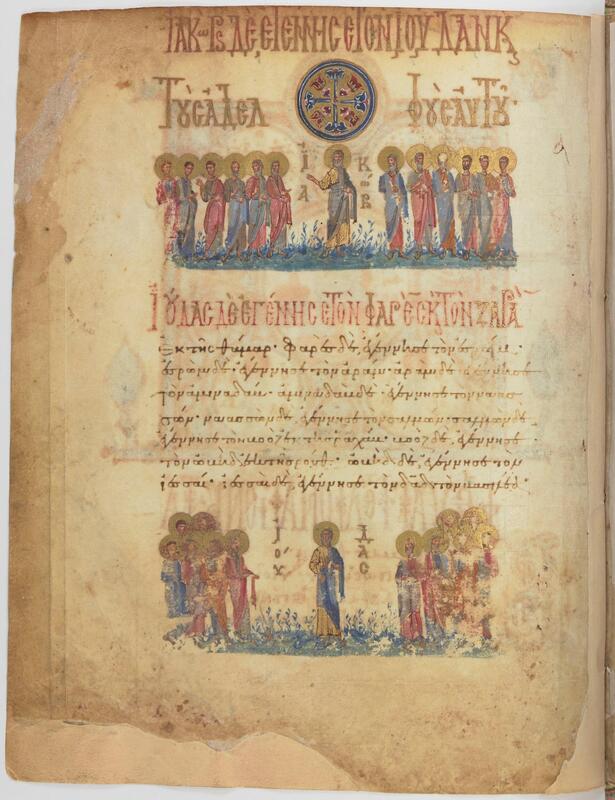 ΙΑΚΩΒΟΣ ΔΕ ΕΓΕΝΝΗΣΕ ΤΟΝ ΙΟΥΔΑΝ Κ
ΤΟΥΣ ΑΔΕΛ ΦΟΥΣ ΑΥΤΟΥ
ΙΑ ΚΩΒ
ΙΟΥΔΑΣ ΔΕ ΕΓΕΝΝΗΣΕ ΤΟΝ ΦΑΡΕΣ Κ ΤΟΝ ΖΑΡΑ
ἐκ τῆς θάμαρ· φαρὲς δὲ ἐγέννησε τὸν ἐσρώμ·
ἐσρὼμ δὲ ἐγέννησε τὸν ἀράμ· ἀρὰμ δὲ ἐγέννησε
τὸν ἀμιναδάμ· ἀμιναδὰμ δὲ ἐγέννησε τὸν ναασ
σών· ναασσὼν δὲ ἐγέννησε τὸν σαλμών· σαλμὼν δὲ
ἐγέννησε τὸν βοὸζ ἐκ τῆς ῥαχάβ· βοὸζ δὲ ἐγέννησε
τὸν ὠβὴδ ἐκ τῆς ῥούθ· ὠβὴδ δὲ ἐγέννησε τὸν
ἰεσσαί· ἰεσσαὶ δὲ ἐγέννησε τὸν δαδ τὸν βασιλέα·
ΙΟΥ ΔΑΣ